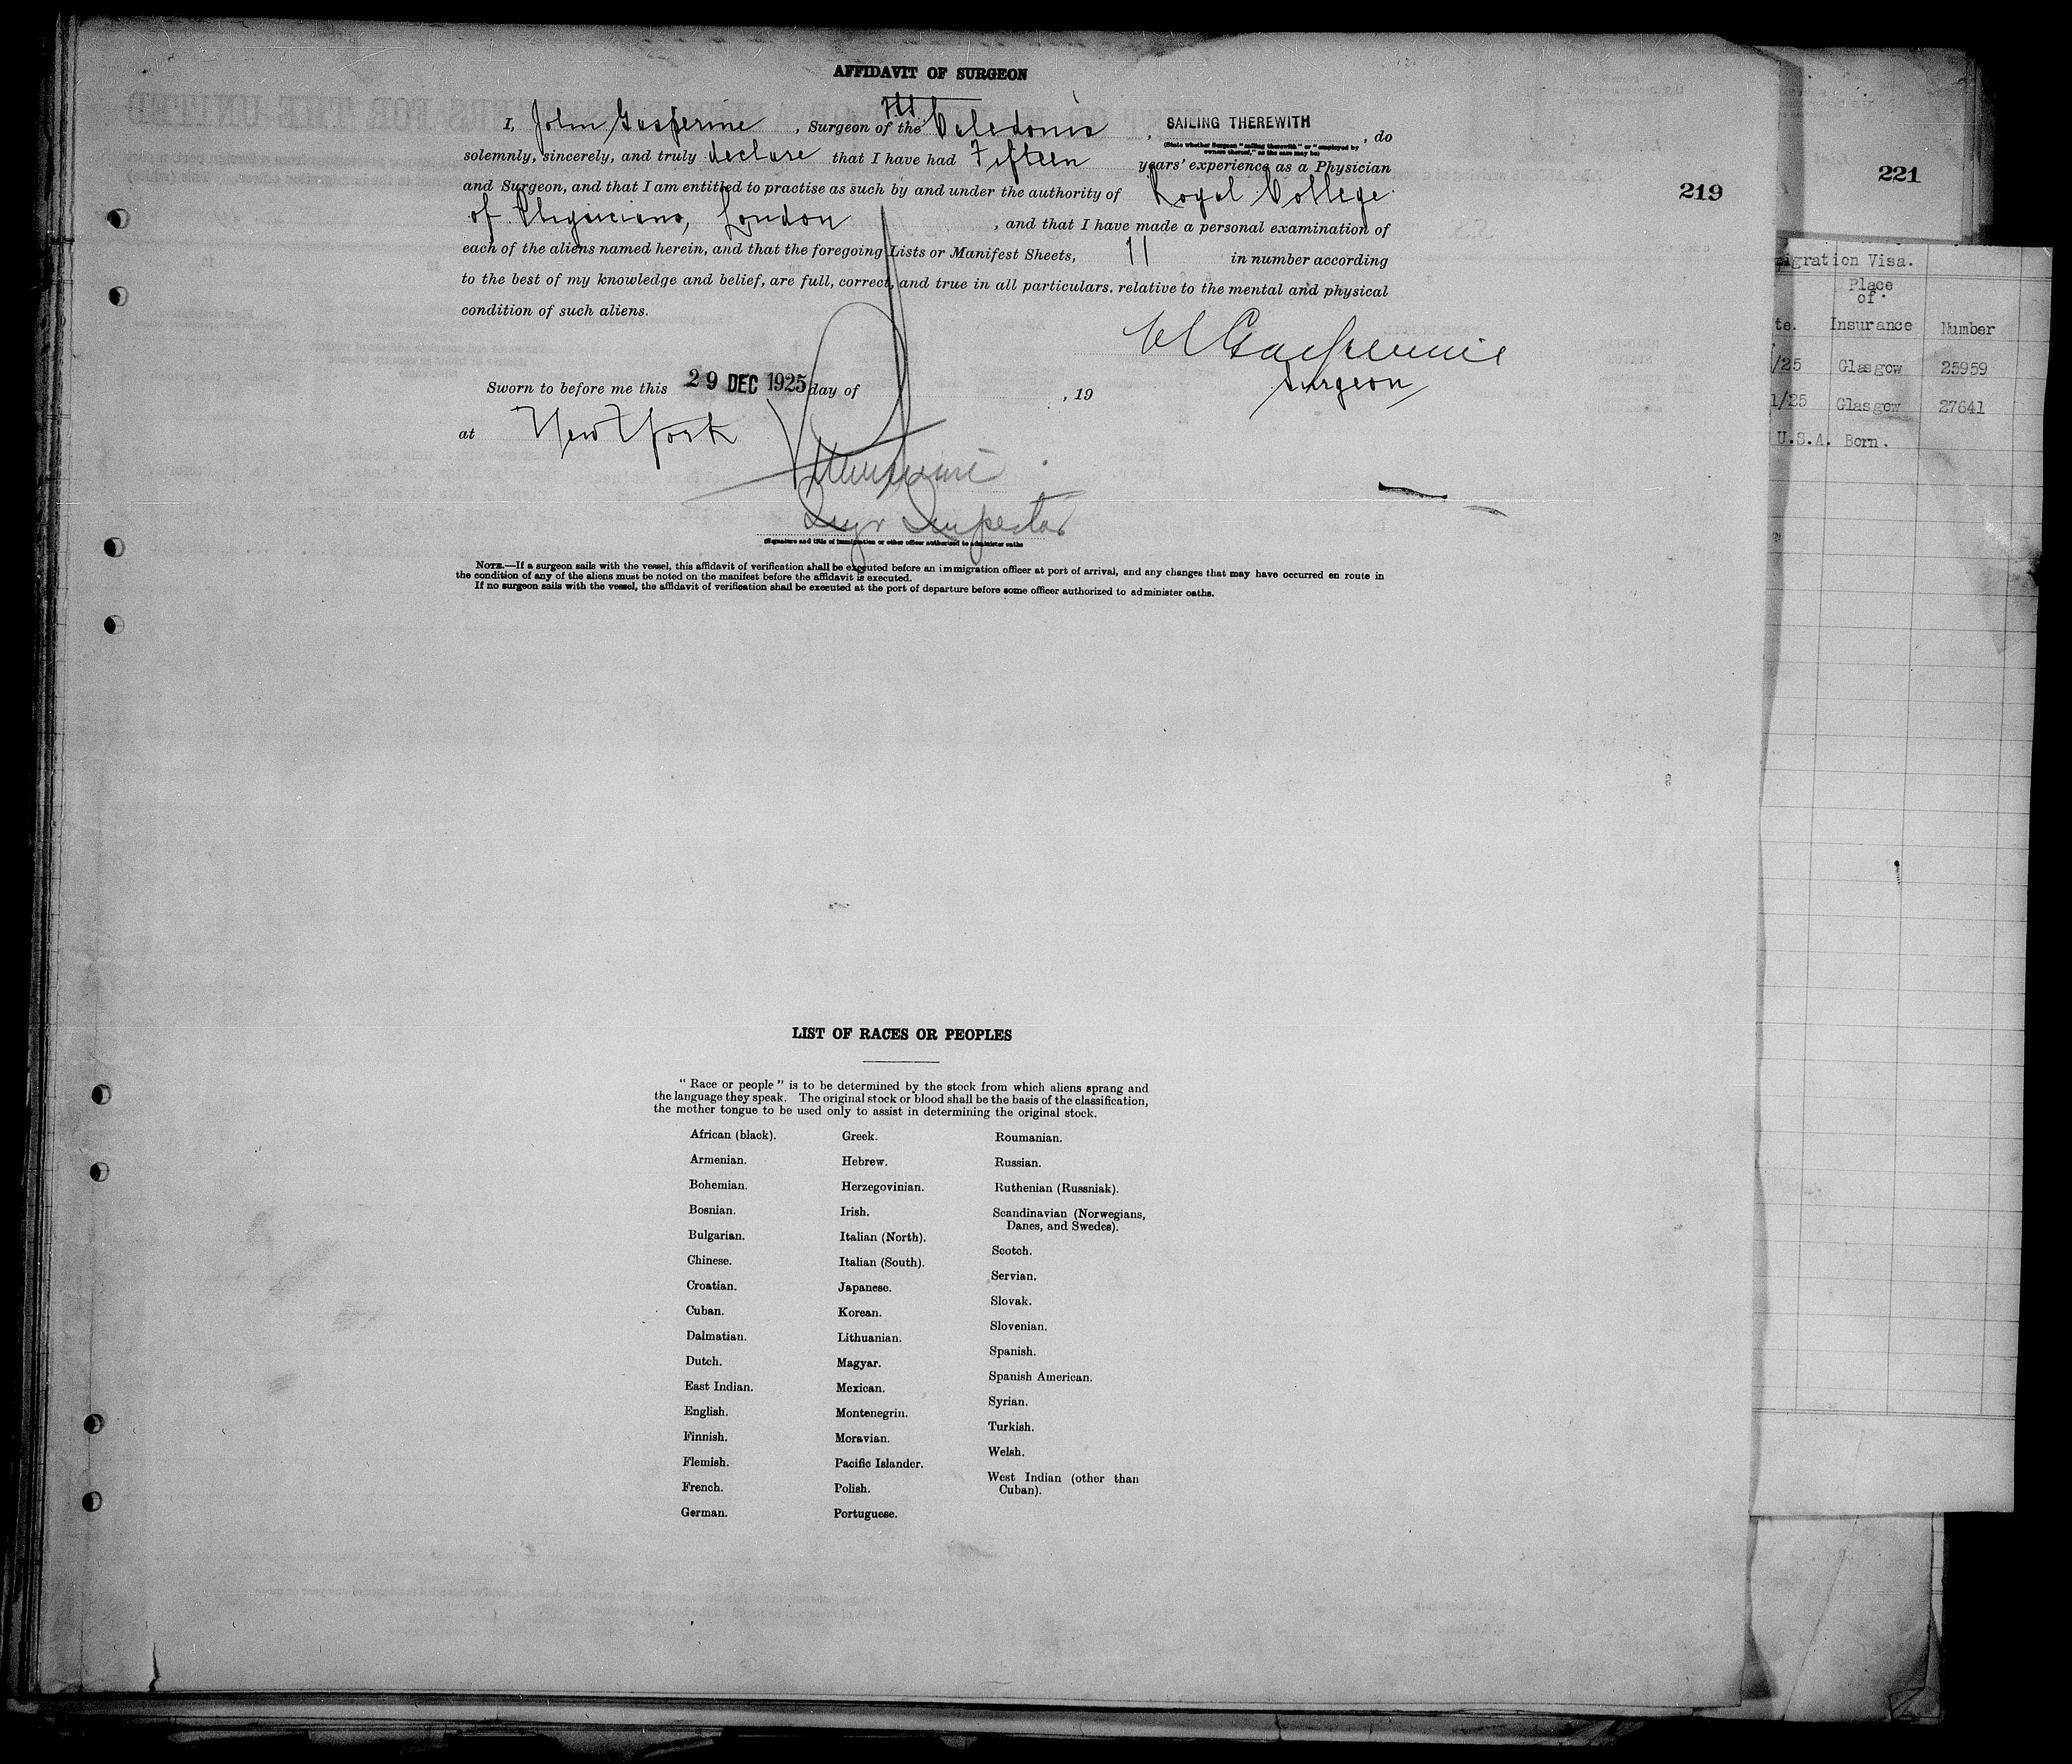 AFFIDAVIT OF SURGEON
I, John Gasperine, Surgeon of the Caledonia, SAILING THEREWITH, do
(State whether Surgeon "sailing therewith" or "employed by
owners thereof," as the case may be)
solemnly, sincerely, and truly declare that I have had Fifteen years' experience as a Physician
and Surgeon, and that I am entitled to practise as such by and under the authority of Royal College
of Physicians, London, and that I have made a personal examination of
each of the aliens named herein, and that the foregoing Lists or Manifest Sheets, 11 in number according
to the best of my knowledge and belief, are full, correct, and true in all particulars. relative to the mental and physical
condition of such aliens.
Surgeon
Sworn to before me this 29 DEC 1925 day of , 19
at New York
Inspector
(Signature and title of immigration or other officer authorized to administer oaths
NOTE.—If a surgeon sails with the vessel, this affidavit of verification shall be executed before an immigration officer at port of arrival, and any changes that may have occurred en route in
the condition of any of the aliens must be noted on the manifest before the affidavit is executed.
If no surgeon sails with the vessel, the affidavit of verification shall be executed at the port of departure before some officer authorized to administer oaths.
219
221
migration Visa.
Place
of
te. Insurance Number
/25 Glasgow 25959
1/25 Glasgow 27641
U.S.A. Born.
LIST OF RACES OR PEOPLES
"Race or people" is to be determined by the stock from which aliens sprang and
the language they speak. The original stock or blood shall be the basis of the classification,
the mother tongue to be used only to assist in determining the original stock.
African (black).
Armenian.
Bohemian.
Bosnian.
Bulgarian.
Chinese.
Croatian.
Cuban.
Dalmatian.
Dutch.
East Indian.
English.
Finnish.
Flemish.
French.
German.
Greek.
Hebrew.
Herzegovinian.
Irish.
Italian (North).
Italian (South).
Japanese.
Korean.
Lithuanian.
Magyar.
Mexican.
Montenegrin.
Moravian.
Pacific Islander.
Polish.
Portuguese.
Roumanian.
Russian.
Ruthenian (Russniak).
Scandinavian (Norwegians,
Danes, and Swedes).
Scotch.
Servian.
Slovak.
Slovenian.
Spanish.
Spanish American.
Syrian.
Turkish.
Welsh.
West Indian (other than
Cuban).